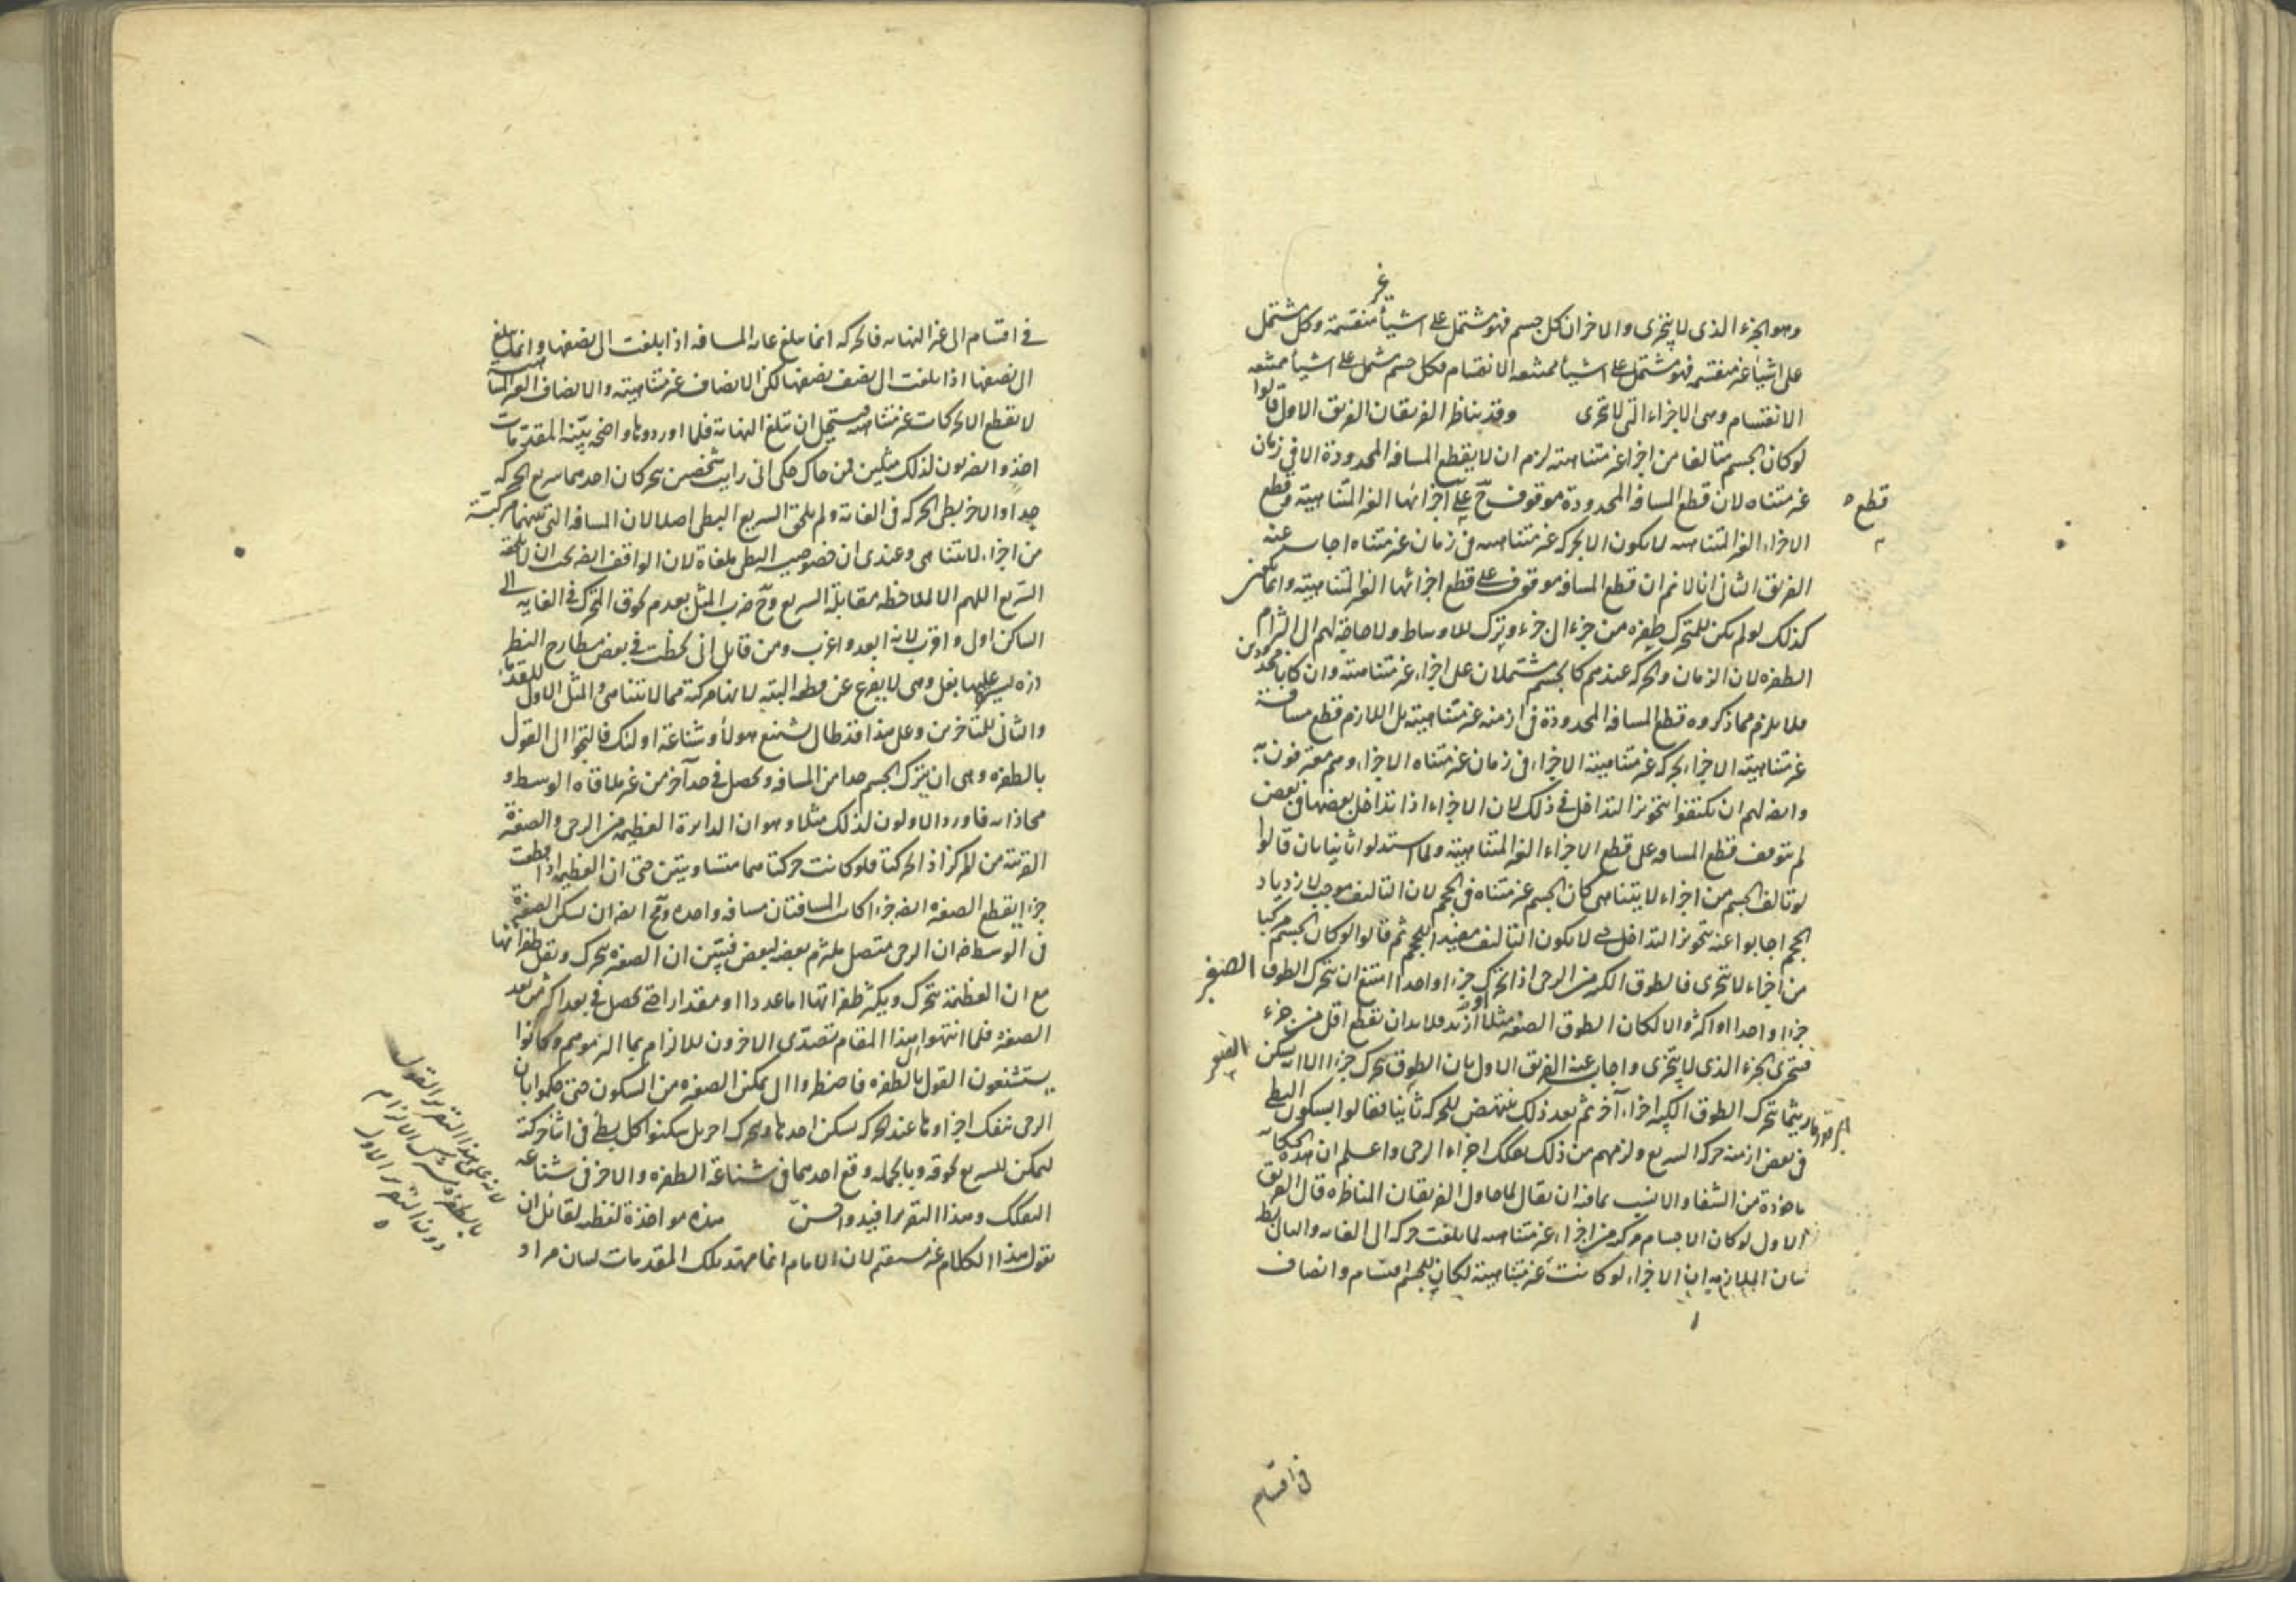 غير
وهو الجزء الذى لا يتجزى والاخر ان كل جسم فهو مشتمل على اشياء منقسمة وكل مشتمل
على اشياء غير منقسمه فهو مشتمل على اشياء ممتنعه الانقسام فكل جسم مشتمل على اشياء ممتنعه
الانقسام وهى الاجزاء التى لا تتجزى وقد يناظر الفريقان الفريق الاول قالوا
لو كان الجسم متالفا من اجزاء غير متناهيه لزم ان لا يقطع المسافه المحدودة الا فى زمان
غير متناه لان قطع المسافه المحدودة موقوف ح على اجزائها الغير المتناهية وقطع
قطع
الاجزاء الغير المتناهيه لا يكون الا بحركه غير متناهيه فى زمان غير متناه اجاب عنه
الفريق الثانى انا لا نم ان قطع المسافه موقوف على قطع اجزائها الغير المتناهية وانما يكون
كذلك لو لم يكن للمتحرك طفره من جزء الى جزء وترك للاوساط ولا حاجة لهم الى التزام
الطفره لان الزمان والحركه عندهم كالجسم مشتملان على اجزاء غير متناهية وان كانا محدودين
فلا يلزم مما ذكروه قطع المسافه المحدودة فى ازمنه غير متناهية بل اللازم قطع مسافة
غير متناهية الاجزاء بحركه غير متناهية الاجزاء فى زمان غير متناه الاجزاء وهم معترفون به
وايضا لهم ان يكتفوا بتجويز التداخل فى ذلك لان الاجزاء اذا تداخل بعضها فى بعض
لم يتوقف قطع المسافه على قطع الاجزاء الغير المتناهية ولما استدلوا ثانيا بان قالوا
لو تالف الجسم من اجزاء لا يتناهى كان الجسم غير متناه فى الحجم لان التاليف موجب لازدياد
الحجم اجابوا عنه بتجويز التداخل اذ لا يكون التاليف مفيدا للحجم ثم قالوا لو كان الجسم مركبا
من اجزاء لا تتجزى فالطوق الكبير من الرحى اذا تحرك جزءا واحدا امتنع ان يتحرك الطوق الصغير
جزءا واحدا او اكثر والا لكان الطوق الصغير مثلا او ازيد فلا بد ان يقطع اقل من جزء
فيتجزى الجزء الذى لا يتجزى واجاب عنه الفريق الاول بان الطوق يتحرك جزءا الا انه يسكن الصغير
ريثما يتحرك الطوق الكبير اجزاء آخر ثم بعد ذلك ينتهض للحركه ثانيا فقالوا بسكون البطى
فى بعض ازمنة حركه السريع ولزمهم من ذلك تفكك اجزاء الرحى واعلم ان هذه الحكاية
ماخوذة من الشفا والانسب بما فيه ان يقال لما حاول الفريقان المناظره قال الفريق
الاول لو كان الاجسام مركبه من اجزاء غير متناهيه لما بلغت حركه الى الغايه والتالى بط
بيان الملازمه ان الاجزاء لو كانت غير متناهية لكان للجسم اقسام وانصاف
فى اقسام
فى اقسام الى غير النهايه فالحركه انما يبلغ غايه المسافه اذا بلغت الى نصفها وانما يبلغ
الى نصفها اذا بلغت الى نصف نصفها لكن الانصاف غير متناهية والانصاف الغير المتناهية
لا يقطع الا بحركات غير متناهيه فيستحيل ان تبلغ النهاية فلما اوردوها واضحه بينة المقدمات
اخذوا يضربون لذلك مثلين فمن حاك حكى انى رايت شخصين يتحركان احدهما سريع الحركه
جدا والاخر بطى الحركه فى الغاية ولم يلحق السريع البطى اصلا لان المسافه التى بينهما مركبة
من اجزاء لا تتناهى وعندى ان خصوصيه البطى ملغاة لان الواقف ايضا يجب ان لا يلحقه
السريع اللهم الا لملاحظه مقابلة السريع وح ضرب المثل بعدم لحوق المتحرك فى الغايه الى
الساكن اولى واقرب لانه ابعد واغرب ومن قائل انى لحظت فى بعض مطارح النظر
ذره يسير عليها نعل وهى لا يفرغ عن قطعه البته لانها مركبة مما لا تتناهى والمثل الاول للقدماء
والثانى للمتاخرين وعلى هذا فقد طال تشنيع هولاء وشناعة اولئك فالتجوا الى القول
بالطفره وهى ان يترك الجسم حدا من المسافه ويحصل فى حد آخر من غير ملاقاه الوسط و
محاذاته فاورد الاولون لذلك مثلا وهو ان الدايرة العظيمه من الرحى والصغيرة
القريبه من المركز اذا تحركتا فلو كانت حركتاهما متساويتين حتى ان العظيمه اذا قطعت
جزءا يقطع الصغيره ايضا جزءا كانت المسافتان مسافه واحده ومح ايضا ان تسكن الصغيرة
فى الوسط فان الرحى متصل ملتزم بعضه لبعض فيتبين ان الصغيره يتحرك وتقل طفراتها
مع ان العظيمة تتحرك ويكثر طفراتها اما عددا او مقدارا حتى يحصل فى بعد اكثر من بعد
الصغيره فلما انتهوا الى هذا المقام تصدى الاخرون للالزام بما التزموهم وكانوا
يستشنعون القول بالطفره فاضطروا الى تمكن الصغيره من السكون حتى حكموا بان
الرحى ينفك اجزاوها عند الحركه بسكن احدها وتحرك اخر بل سكنوا كل بطئ فى اثنا حركته
ليمكن للسريع لحوقه وبالجمله وقع احدهما فى شناعة الطفره والاخر فى شناعه
التفكك وهذا التقرير افيد واحسن هذه مواخذة لفظيه لقائل ان
يقول هذا الكلام غير مستقيم لان الامام انما مهد تلك المقدمات لبيان مراد
لانه على هذا التقرير القول
بالطفره ليس الالزام
دون التقرير الاول